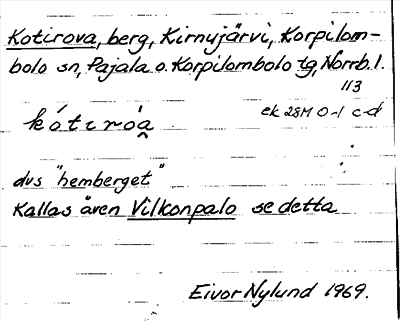 Kotirova, berg, Kirnujärvi, Korpilom-
bolo sn, Pajala o. Korpilombolo tg, Norrb. l.
113
ek 28M 0-1 c-d
kótiròa̯
dvs "hemberget"
Kallas även Vilkonpalo se detta
Eivor Nylund 1969.